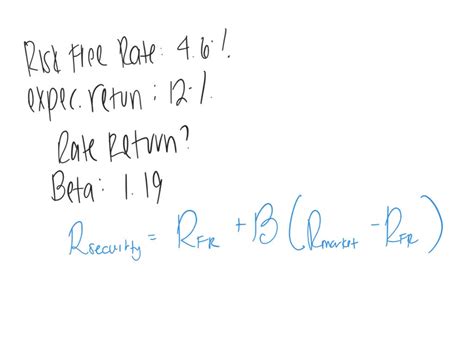 Risk Free Rate: 4.6%
expec. retun: 12%
Rate Return?
Beta: 1.19
Rsecurity = RFR + B (Rmarket - RFR)